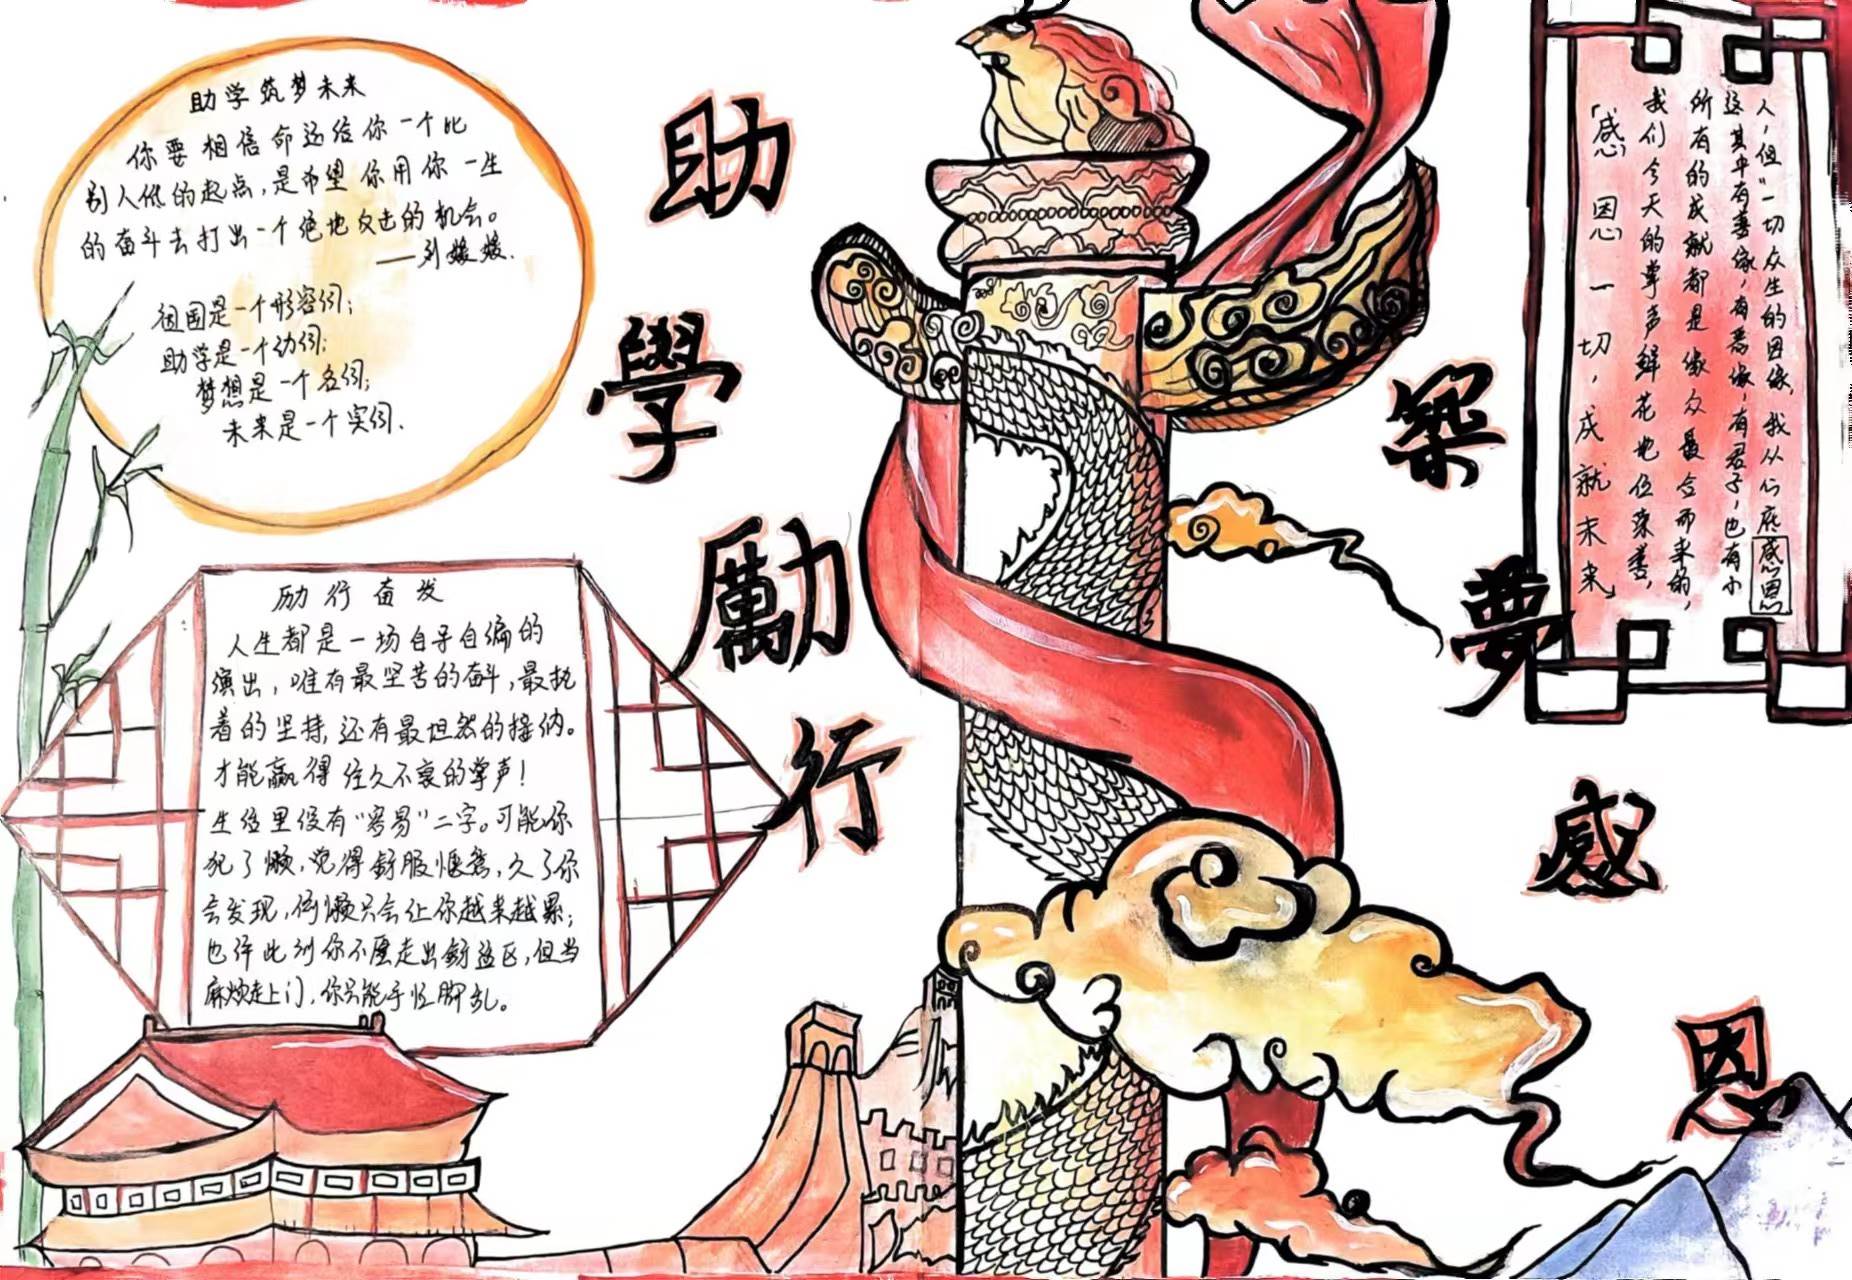 助学筑梦未来
你要相信命运给你一个比
别人低的起点,是希望你用你一生
的奋斗去打出一个绝地反击的机会。
——刘媛媛.
祖国是一个形容词;
助学是一个动词;
梦想是一个名词;
未来是一个实词.
助學勵行
築夢感恩
励行奋发
人生都是一场自导自编的
演出,唯有最坚苦的奋斗,最执
着的坚持,还有最坦然的接纳。
才能赢得经久不衰的掌声!
生活里没有“容易”二字。可能你
犯了懒,觉得舒服惬意,久了你
会发现,偷懒只会让你越来越累;
也许此刻你不愿走出舒适区,但当
麻烦走上门,你只能手忙脚乱。
「感恩一切,成就未来」
我们今天的掌声鲜花地位荣誉,
所有的成就都是缘众聚合而来的,
这其中有善缘,有恶缘,有君子,也有小
人,但“一切众生的因缘,我从心底感恩